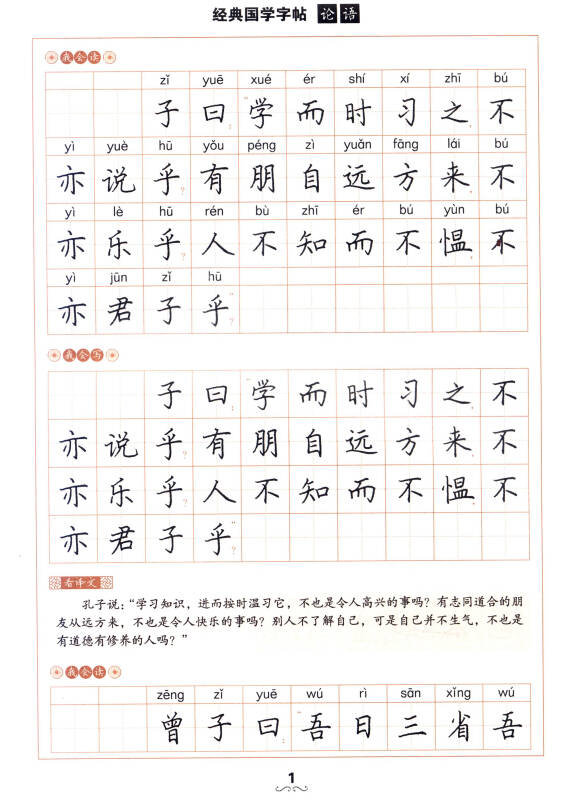 经典国学字帖 论语
我会读
zǐ yuē xué ér shí xí zhī bú
子曰:“学而时习之,不
yì yuè hū yǒu péng zì yuǎn fāng lái bú
亦说乎?有朋自远方来,不
yì lè hū rén bù zhī ér bú yùn bú
亦乐乎?人不知而不愠,不
yì jūn zǐ hū
亦君子乎?”
我会写
子曰:“学而时习之,不
亦说乎?有朋自远方来,不
亦乐乎?人不知而不愠,不
亦君子乎?”
看译文
孔子说:“学习知识,进而按时温习它,不也是令人高兴的事吗?有志同道合的朋
友从远方来,不也是令人快乐的事吗?别人不了解自己,可是自己并不生气,不也是
有道德有修养的人吗?”
我会读
zēng zǐ yuē wú rì sān xǐng wú
曾子曰:“吾日三省吾
1